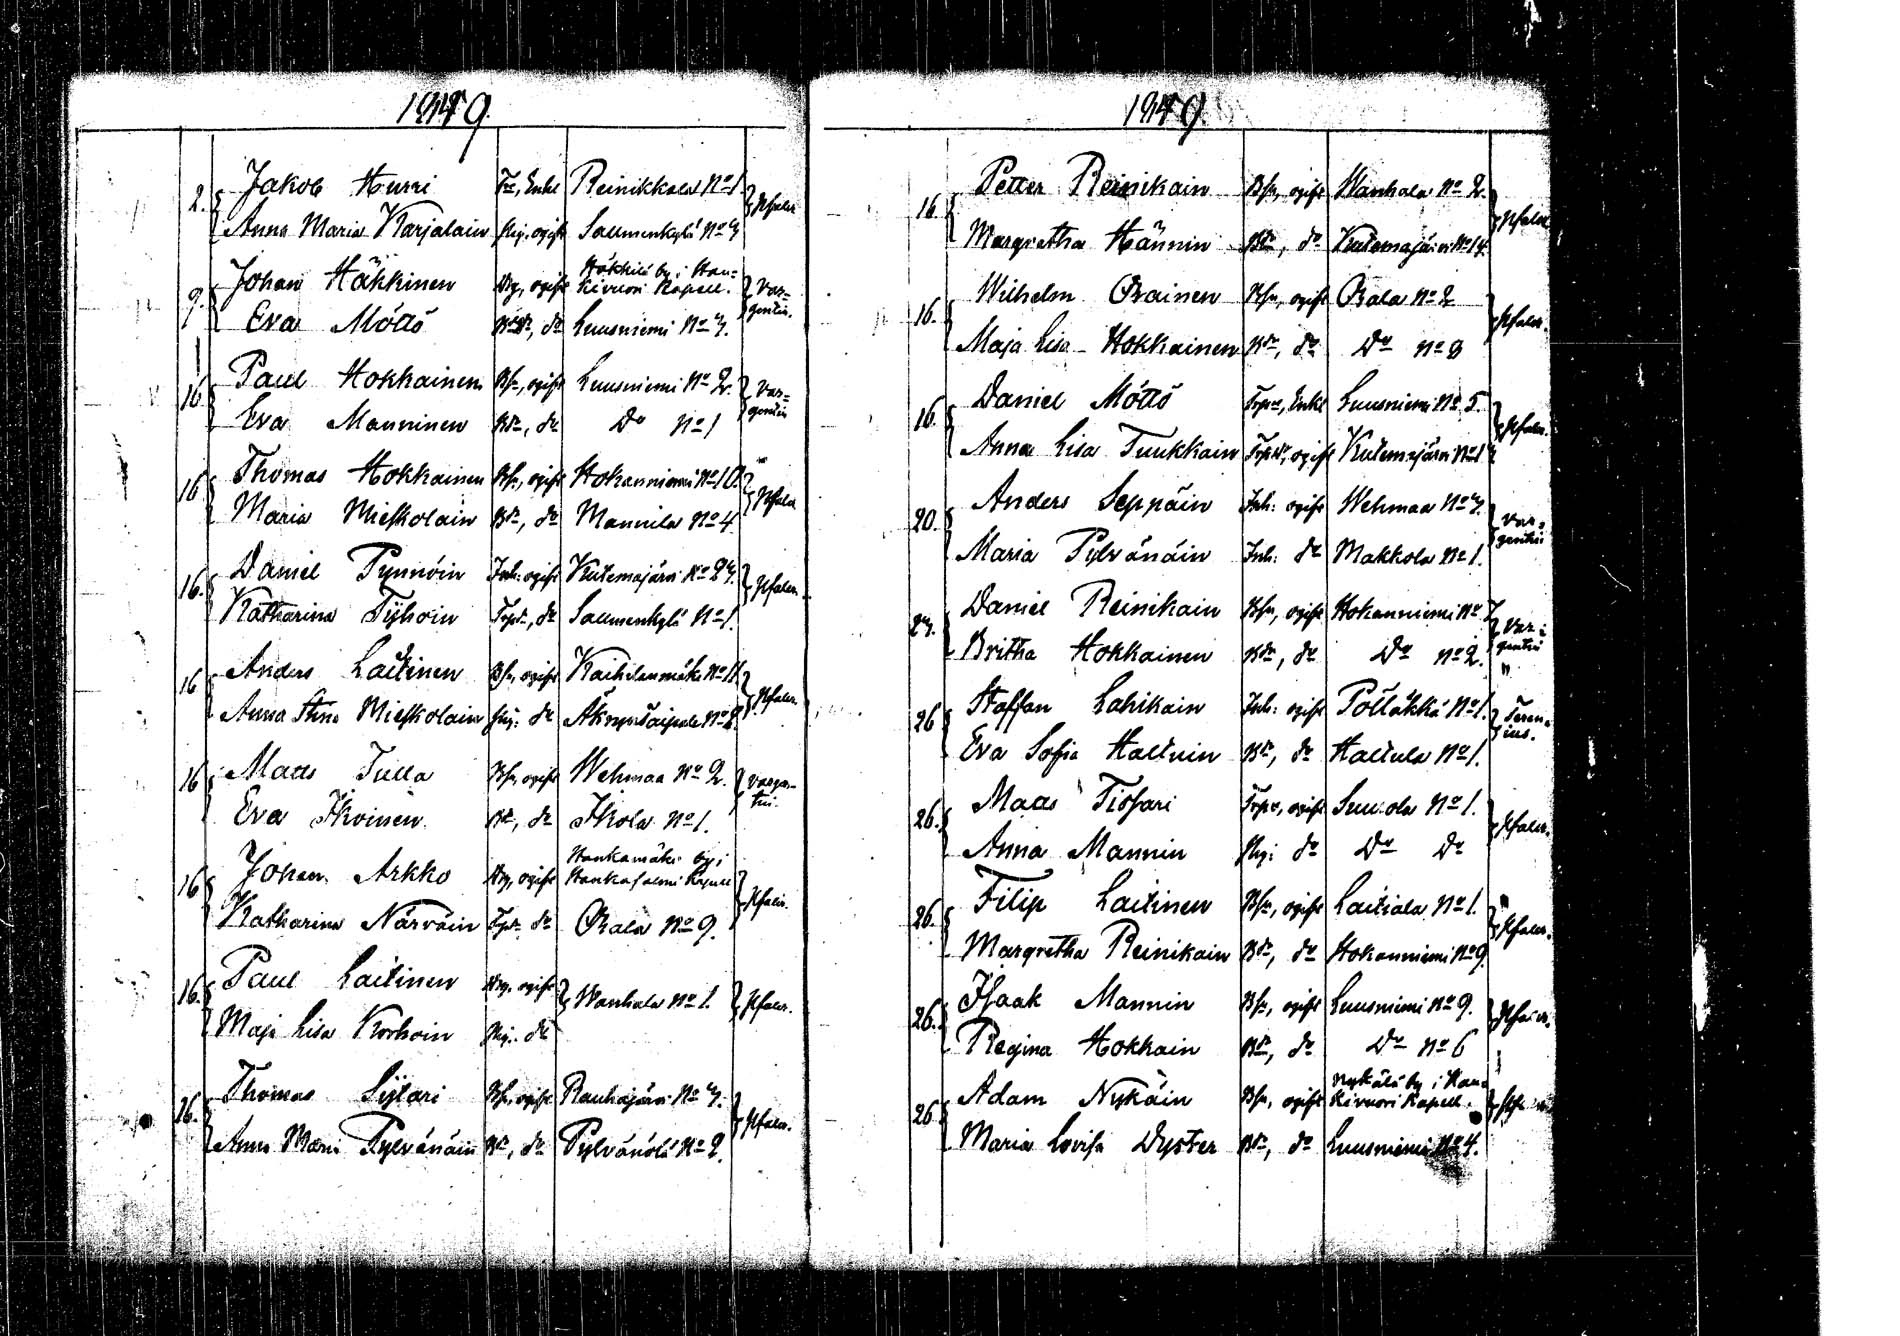 1849.
2. Jakob Hurri Enkl Reinikkala No 1
Anna Maria Karjalain Pig. ogift Saumenkylä No 7
9. Johan Häkkinen Drg, ogift Häkkilä by i Hau=
kivuori Kapell. Var=
gentin.
Eva Möttö do Luusniemi No 7.
16 Paul Hokkainen Bs, ogift Luusniemi No 2. Var=
gentin
Eva Manninen Bdr, do Do No 1
16 Thomas Hokkainen Bs, ogift Hokanniemi No 10.
Maria Mieskolain Bdr, do Mannila No 4
16. Daniel Pynnöin Inh: ogift Kutemajärvi No 27.
Katharina Tyhöin Torpdr, do Saumenkylä No 1.
16 Anders Laitinen Bs, ogift Kaihilanmäki No 11.
Anna Stina Mieskolain Pig: do No 8.
16 Matts Tulla Bs, ogift Wehmaa No 2. Vargen=
tin.
Eva Ikoinen Bdr, do Ikola No 1.
16 Johan Arkko Drg, ogift Hankamäki by i
Hankasalmi Kapell
Katharina Närväin Torpdr do Orala No 9.
16. Paul Laitinen Drg. ogift Wanhala No 1.
Maja Lisa Korhoin Pig. do
16. Thomas Sylari Bs, ogift Rauhajärvi No 7.
Anna Maria Pylvänäin Bdr, do Pylvänälä No 2.
1849.
16. Petter Reinikain Bs, ogift Wanhala No 2.
Margretha Hännin Bdr, do Kutemajärvi No 14.
16. Wilhelm Orainen Bs, ogift Orala No 2
Maja Lisa Hokkainen Bdr, do Do No 8
16. Daniel Möttö Torpare, Enkl Luusniemi No 5.
Anna Lisa Tuukkain Torpdr, ogift Kutemajärvi
20. Anders Seppäin Inh: ogift Wehmaa No 7. Var=
gentin
Maria Pylvänäin Inh: do Makkola No 1.
27. Daniel Reinikain Bs, ogift Hokanniemi No 7 Var=
gentin
Britha Hokkainen Bdr, do Do No 2. "
26 Staffan Lahikain Inh: ogift Pölläkkä No 1. Teren=
ius.
Eva Sofia Haltuin Bdr, do Haltula No 1.
26. Matts Tissari Torpare, ogift No 1.
Anna Mannin Pig: do Do Do
26. Filip Laitinen Bs, ogift Laitiala No 1.
Margretha Reinikain Bdr, do Hokanniemi No 9.
26. Isaak Mannin Bs, ogift Luusniemi No 9.
Regina Hokkain Bdr, do Do No 6
26 Adam Nykäin Bs, ogift Nykälä by i Hau=
kivuori Kapell.
Maria Lovisa Dyster Bdr, do Luusniemi No 4.